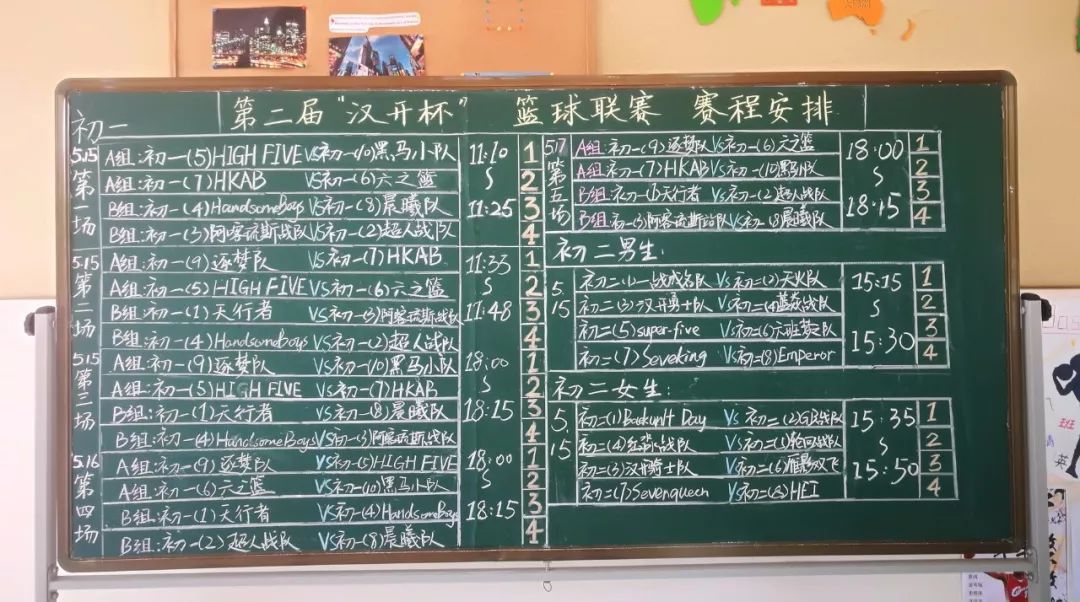 第二届“汉开杯” 篮球联赛 赛程安排
初一
5.15 第一场
A组:初一(5)HIGH FIVE VS初一(10)黑马小队 11:10 1
A组:初一(7)HKAB VS初一(6)六之篮 2
B组:初一(4)HandsomeBoys VS初一(8)晨曦队 11:25 3
B组:初一(3)阿喀琉斯战队VS初一(2)超人战队 4
5.15 第二场
A组:初一(9)逐梦队 VS初一(7)HKAB 11:33 1
A组:初一(5)HIGH FIVE VS初一(6)六之篮 2
B组:初一(1)天行者 VS初一(3)阿喀琉斯战队 11:48 3
B组:初一(4)HandsomeBoys VS初一(2)超人战队 4
5.15 第三场
A组:初一(9)逐梦队 VS初一(10)黑马小队 18:00 1
A组:初一(5)HIGH FIVE VS初一(7)HKAB 2
B组:初一(1)天行者 VS初一(8)晨曦队 18:15 3
B组:初一(4)HandsomeBoys VS初一(3)阿喀琉斯战队 4
5.16 第四场
A组:初一(9)逐梦队 VS初一(5)HIGH FIVE 18:00 1
A组:初一(6)六之篮 VS初一(10)黑马小队 2
B组:初一(1)天行者 VS初一(4)HandsomeBoys 18:15 3
B组:初一(2)超人战队 VS初一(8)晨曦队 4
5.17 第五场
A组:初一(9)逐梦队 VS初一(6)六之篮 18:00 1
A组:初一(7)HKAB VS初一(10)黑马队 2
B组:初一(1)天行者 VS初一(2)超人战队 18:15 3
B组:初一(3)阿喀琉斯战队 VS初一(8)晨曦队 4
初二男生:
5.15
初二(1)一战成名队 VS初二(2)天火队 15:15 1
初二(3)汉开勇士队 VS初二(4)战队 2
初二(5)super-five VS初二(6)六班梦队 15:30 3
初二(7)Seveking VS初二(8)Emperor 4
初二女生:
5.15
初二(1) Day VS 初二(2)GB战队 15:35 1
初二(4)战队 VS初二(5)战队 2
初二(3)汉开骑士队 VS初二(6)双飞 15:50 3
初二(7)Sevenqueen VS初二(8)HEI 4
班